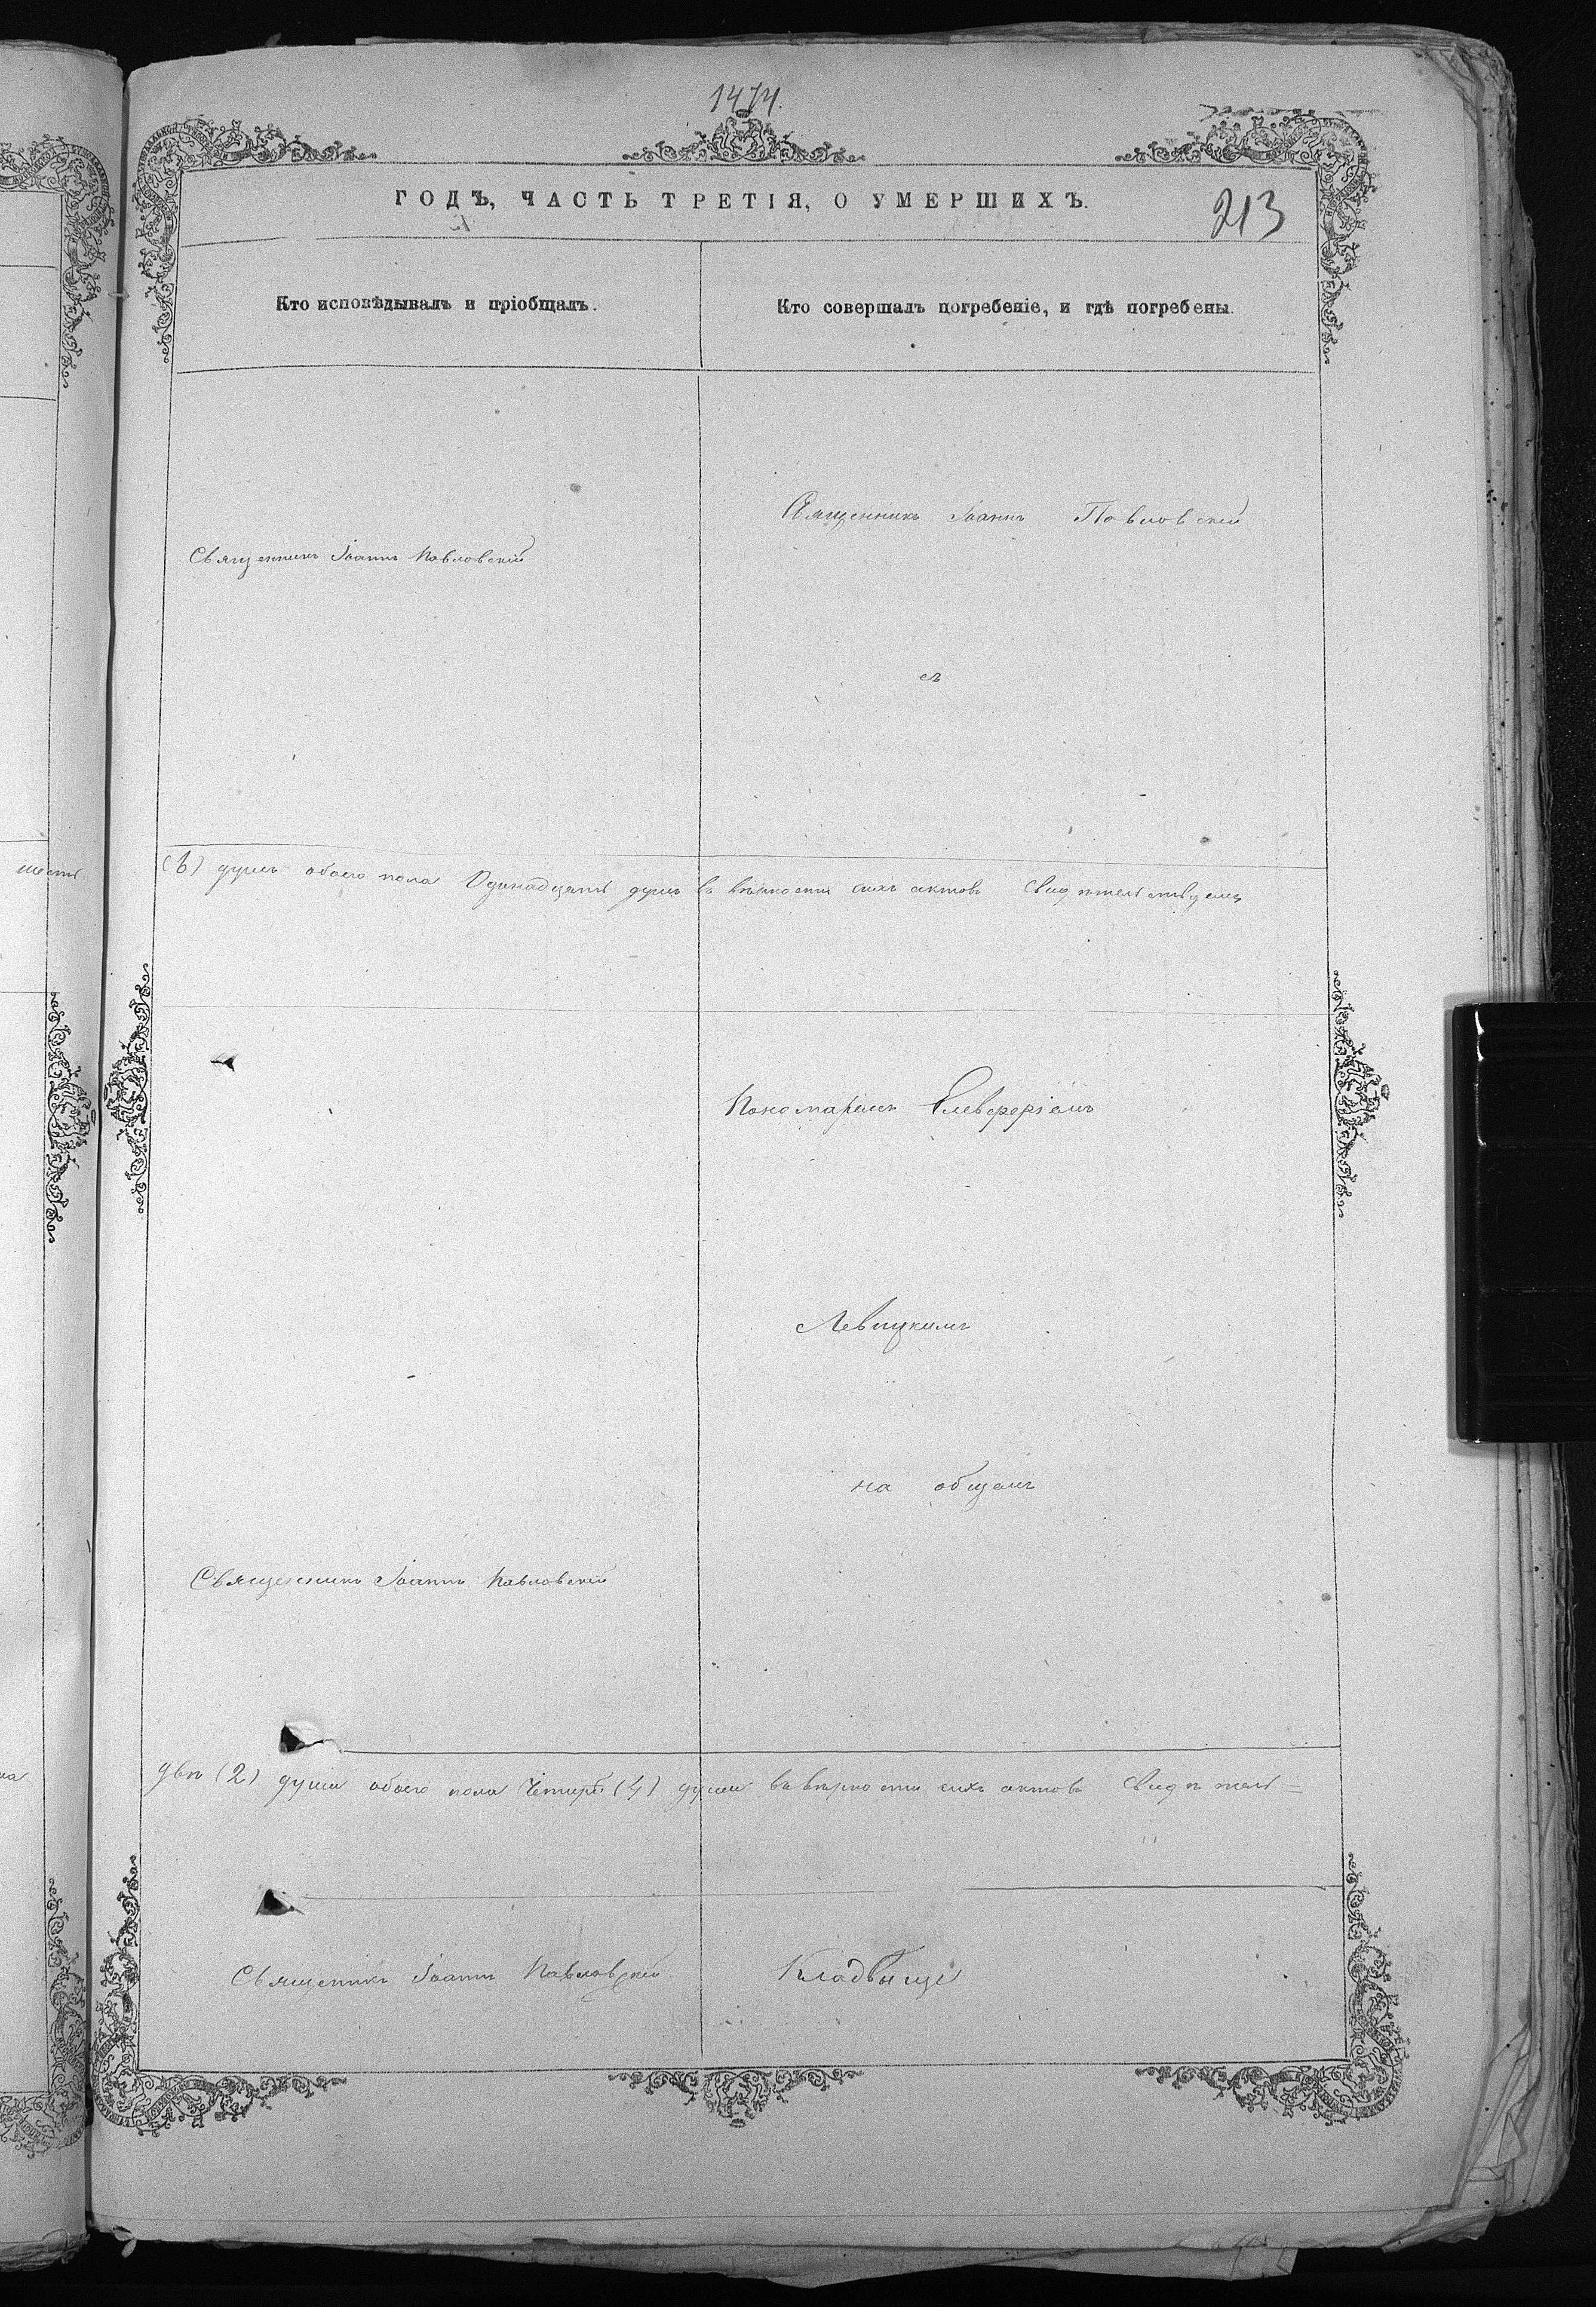 1474.
ГОДЪ, ЧАСТЬ ТРЕТІЯ, О УМЕРШИХЪ.
213
Кто исповѣдывалъ и пріобщалъ.
Кто совершалъ погребеніе, и гдѣ погребены.
Священникъ Іоаннъ Павловскій
Священникъ Іоаннъ Павловскій
съ
шесть
(6) душъ обоего пола Одинадцать душъ въ вѣрности сихъ актовъ свидѣтельствуемъ
Пономаремъ Елевферіемъ
Левицкимъ
на общемъ
Священникъ Іоаннъ Павловскій
двѣ (2) души обоего пола Четыре (4) души въ вѣрности сихъ актовъ свидѣтель=
Священникъ Іоаннъ Павловскій
Кладбищѣ